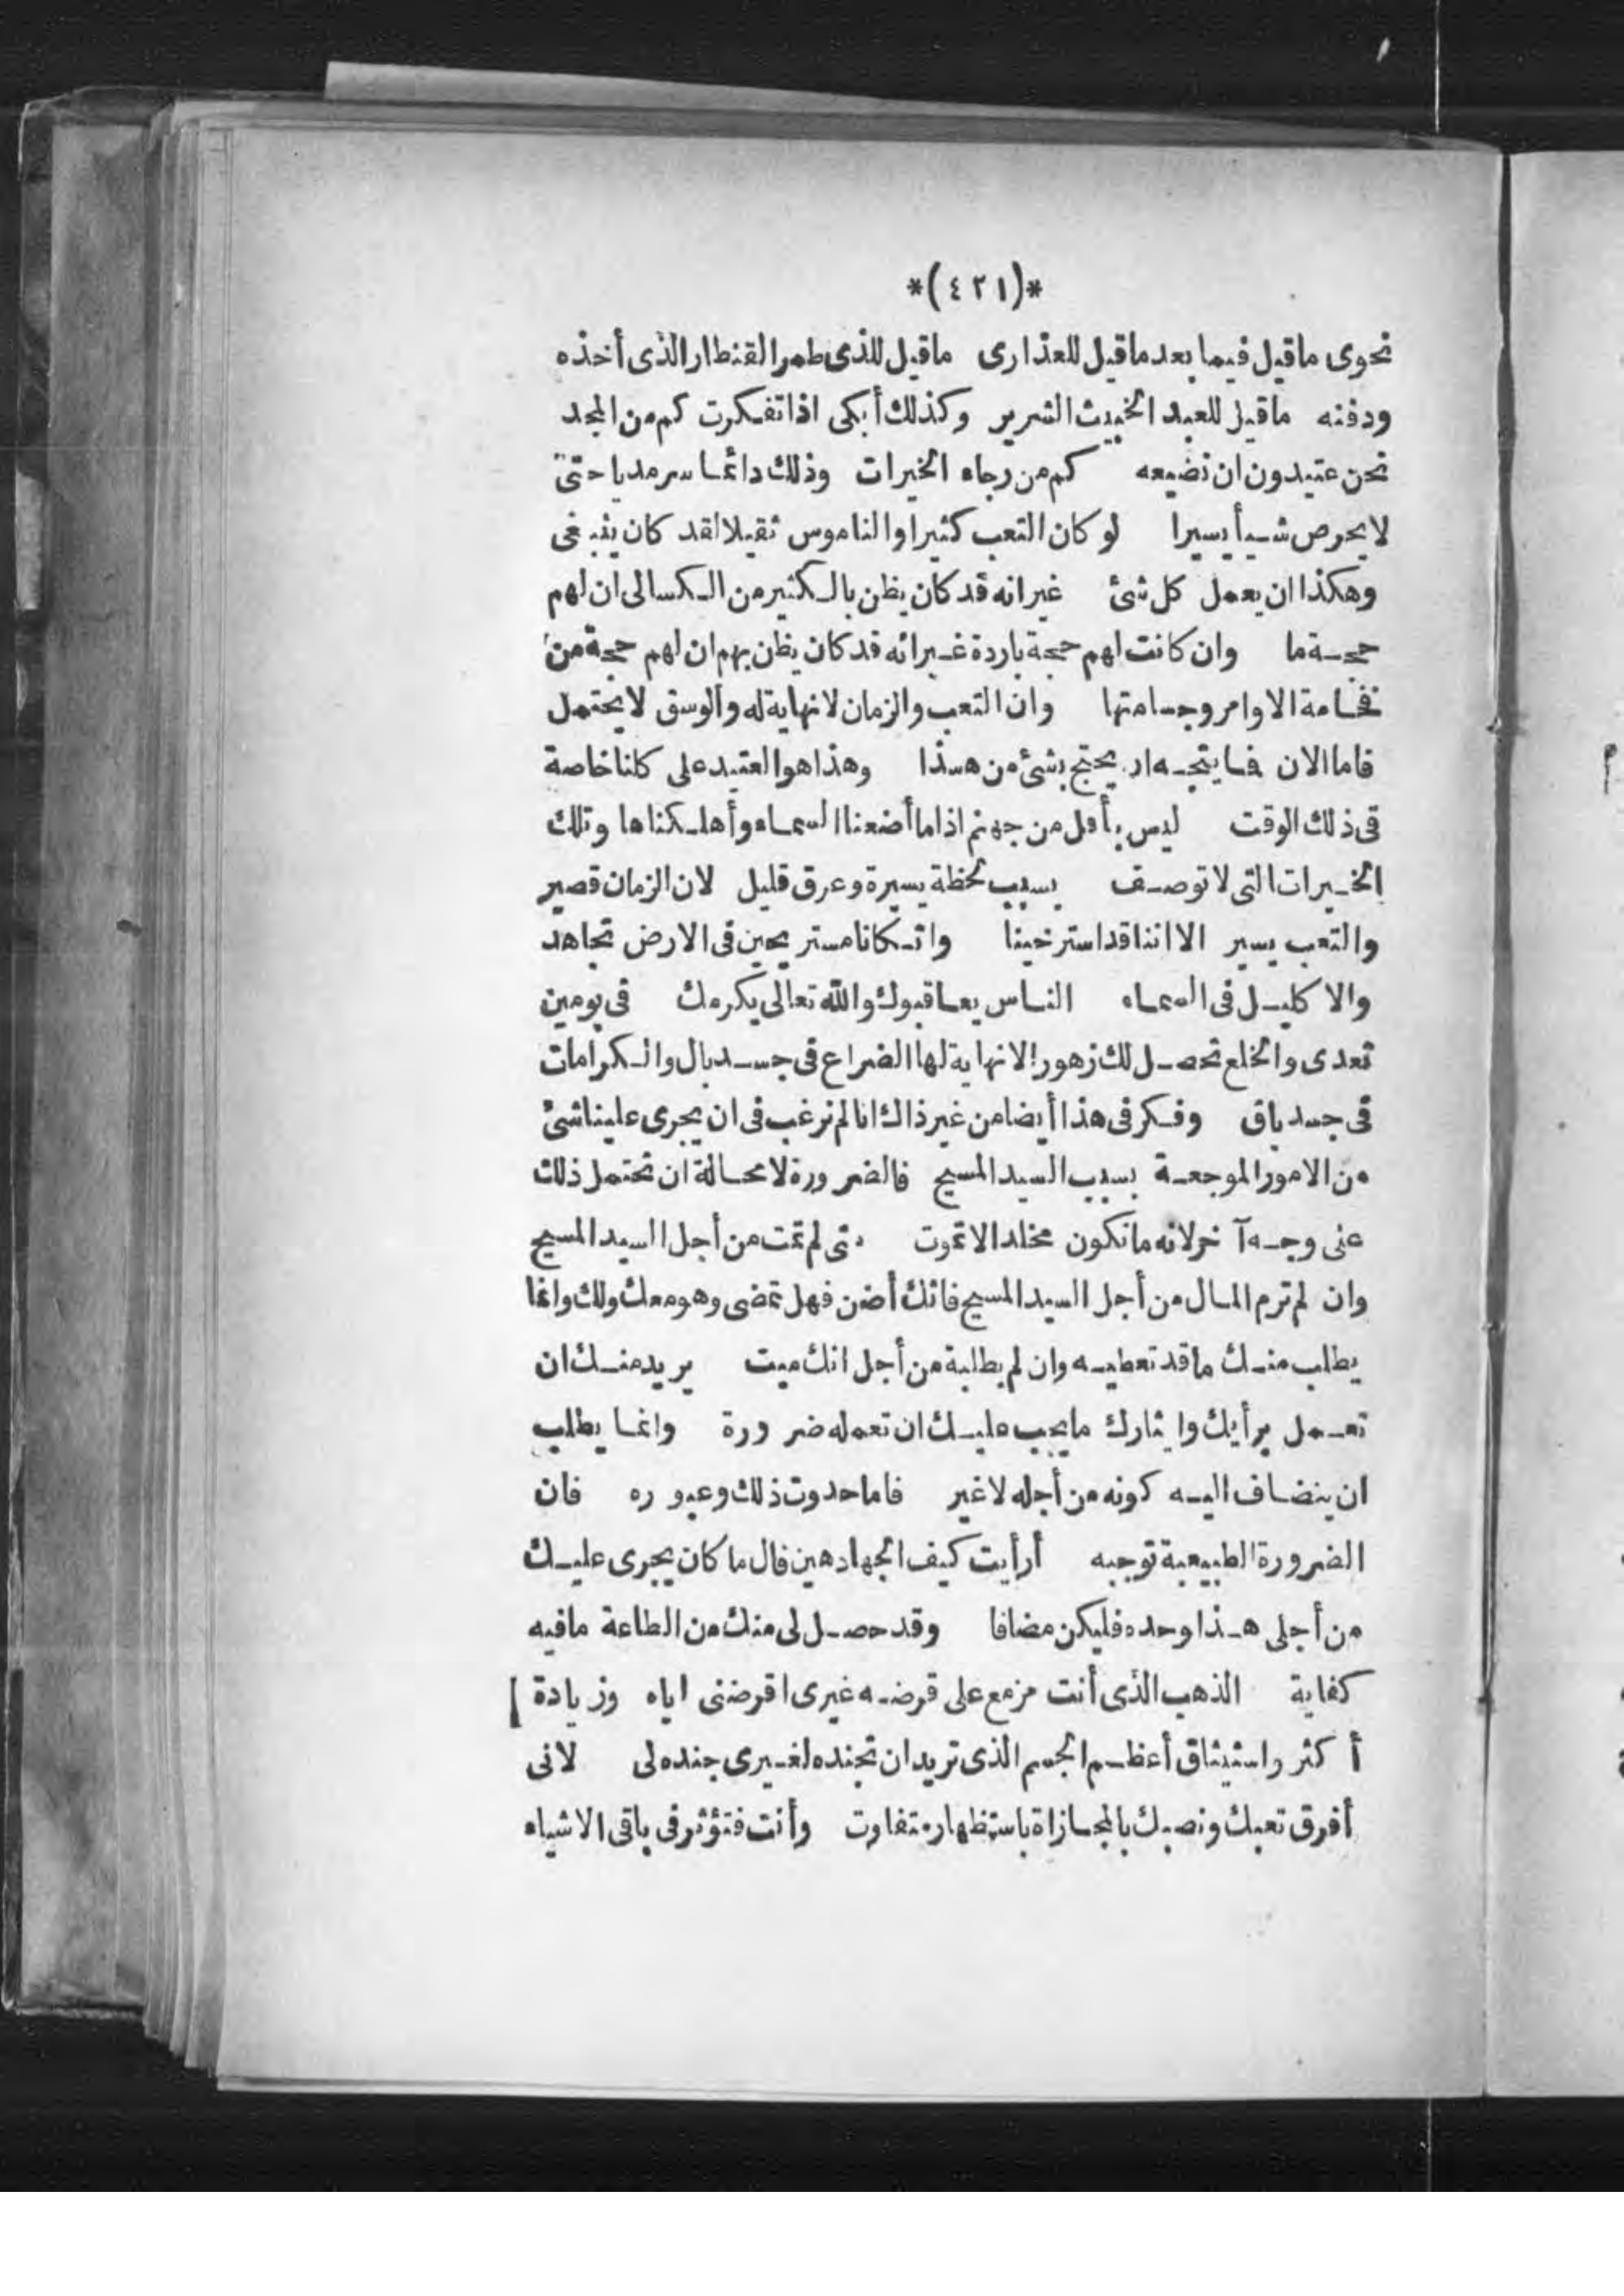 *(٤٢١)*
نحوى ماقيل فيما بعد ماقيل للعذارى ماقيل للذى طمر القنطار الذى أخذه
ودفنه ماقيل للعبد الخبيث الشرير وكذلك أبكى اذا تفكرت كم من المجد
نحن عتيدون ان نضيعه كم من رجاء الخيرات وذلك دائما سرمديا حتى
لا يحرص شيأ يسيرا لو كان التعب كثيرا والناموس ثقيلا لقد كان ينبغى
وهكذا ان يعمل كل شئ غير انه قد كان يظن بالكثير من الكسالى ان لهم
حجة ما وان كانت لهم حجة باردة غير انه قد كان يظن بهم ان لهم حجة من
فخامة الاوامر وجسامتها وان التعب والزمان لانهاية له والوسق لا يحتمل
فاما الان فما يتجه ان يحتج بشئ من هذا وهذا هو العتيد على كلنا خاصة
فى ذلك الوقت ليس بأقل من جهنم اذا ما أضعنا السماء وأهلكناها وتلك
الخيرات التى لا توصف بسبب لحظة يسيرة وعرق قليل لان الزمان قصير
والتعب يسير الا اننا قد استرخينا واتكانا مستريحين فى الارض تجاهد
والاكليل فى السماء الناس يعاقبوك والله تعالى يكرمك فى يومين
تعدى والخلع تحصل لك زهورا لانهاية لها الضراع فى جسد بال والكرامات
فى جسد باق وفكر فى هذا أيضا من غير ذاك انا لم نرغب فى ان يجرى علينا شئ
من الامور الموجعة بسبب السيد المسيح فالضرورة لامحالة ان نحتمل ذلك
على وجه آخر لانه ما نكون مخلدا لاتموت متى لم تمت من أجل السيد المسيح
وان لم ترم المال من أجل السيد المسيح فانك أضن فهل تمضى وهو معك ولك وانما
يطلب منك ما قد تعطيه وان لم يطلبة من أجل انك ميت يريد منك ان
تعمل برأيك وايثارك ما يجب عليك ان تعمله ضرورة وانما يطلب
ان ينضاف اليه كونه من أجله لاغير فاما حدوث ذلك وعبوره فان
الضرورة الطبيعية توجبه أرأيت كيف الجهاد هين قال ما كان يجرى عليك
من أجلى هذا وحده فليكن مضافا وقد حصل لى منك من الطاعة مافيه
كفاية الذهب الذى أنت مزمع على قرضه غيرى اقرضنى اياه وزيادة
أكثر واستيثاق أعظم الجسم الذى تريد ان تجنده لغيرى جنده لى لانى
أفرق تعبك ونصبك بالمجازاة باستظهار متفاوت وأنت فتؤثر فى باقى الاشياء